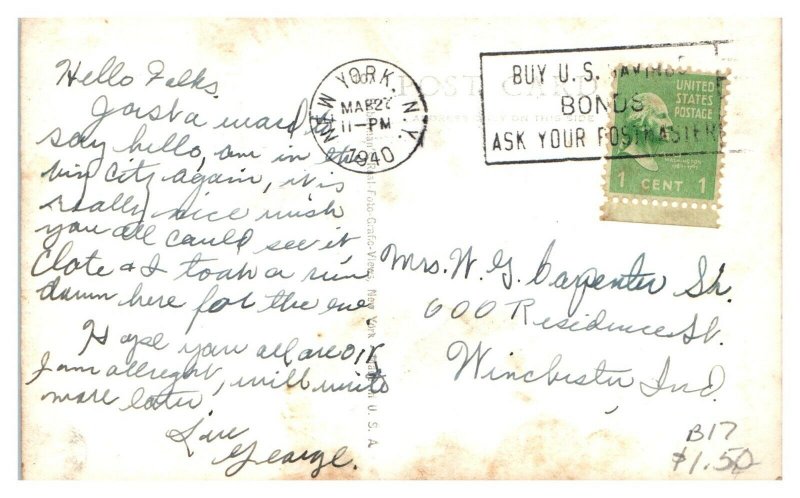 Hello Folks.
Just a word to
say hello, am in the
big City again, it is
really nice wish
you all could see it
Clote & I took a run
down here for the eve.
Hope you all are OK
I am allright, will write
more later
Luv
George.
NEW YORK, N.Y.
MAR 27
11-PM
1940
POST CARD
ADDRESS ONLY ON THIS SIDE
BUY U.S. SAVINGS
BONDS
ASK YOUR POSTMASTER
UNITED
STATES
POSTAGE
WASHINGTON
1 CENT 1
Real-Foto-Grafic-Views, New York U.S.A
Mrs. W. G. Carpenter Sr.
600 Residence St.
Winchester, Ind.
B17
$1.50